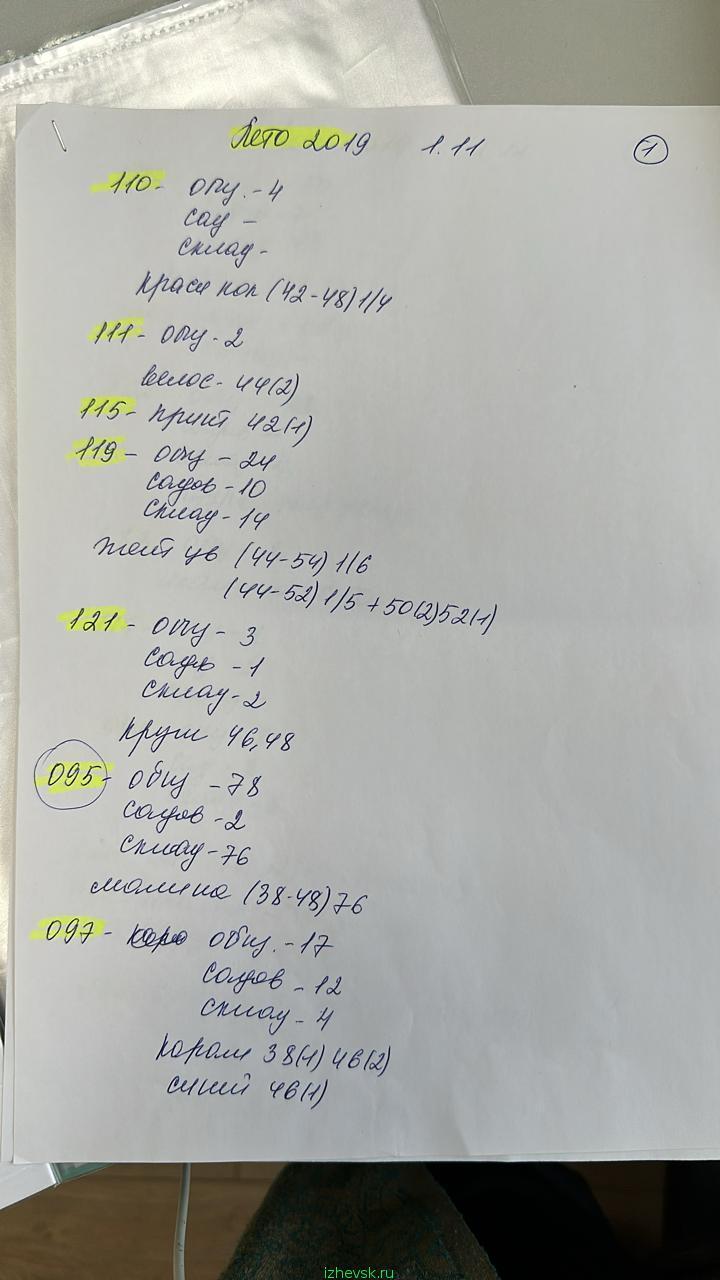 Лето 2019 1.11 1
110- общ.-4
сад -
склад-
краси кол (42-48)1/4
111- общ-2
велос- 44(2)
115- принт 42(1)
119- общ - 24
садов-10
склад-14
желт цв (44-54) 1/6
(44-52) 1/5 + 50(2) 52(1)
121- общ- 3
садов -1
склад-2
круж 46,48
095- общ -78
садов-2
склад-76
малина (38-48) 76
097- общ.-17
садов -12
склад-4
корал 38(1) 46(2)
синий 46(1)
izhevsk.ru